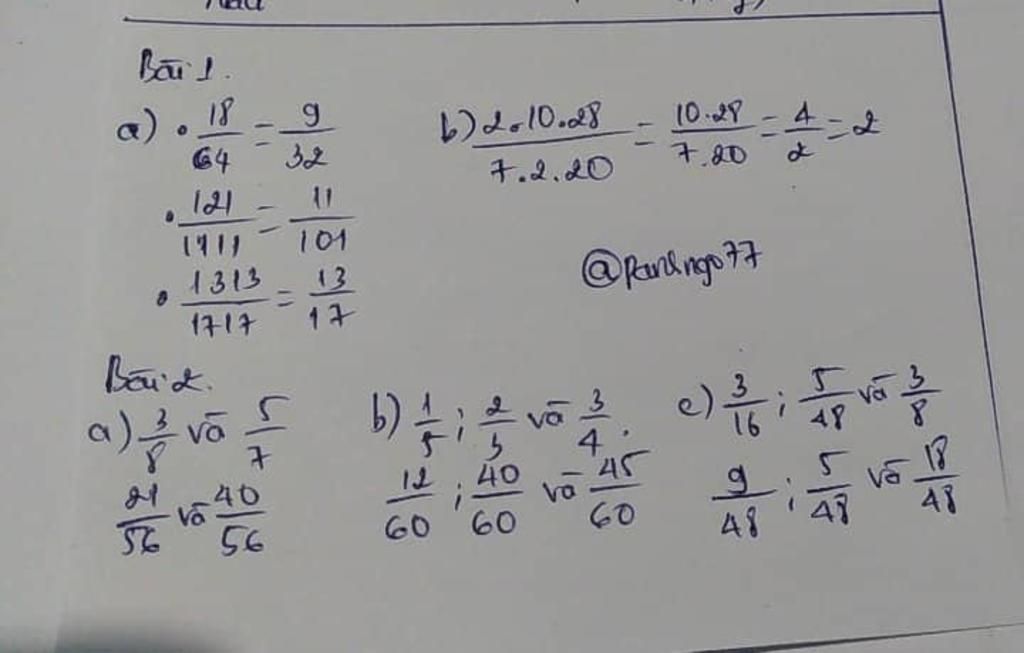 Bài 1.
a) • 18/64 = 9/32
• 121/1111 = 11/101
• 1313/1717 = 13/17
b) 2.10.28/7.2.20 = 10.28/7.20 = 4/2 = 2
Bài 2.
a) 3/8 và 5/7
21/56 và 40/56
b) 1/5 ; 2/3 và 3/4.
12/60 ; 40/60 và 45/60
c) 3/16 ; 5/48 và 3/8
9/48 ; 5/48 và 18/48